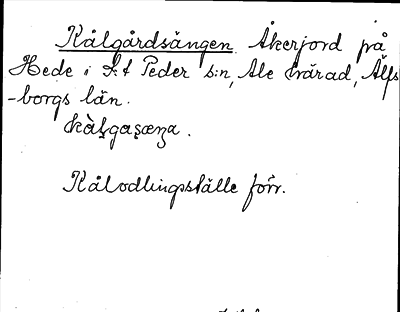 Kålgårdsängen. Åkerjord på
Hede i S:t Peder s:n, Ale härad, Älfs
-borgs län.
Kålodlingsställe förr.